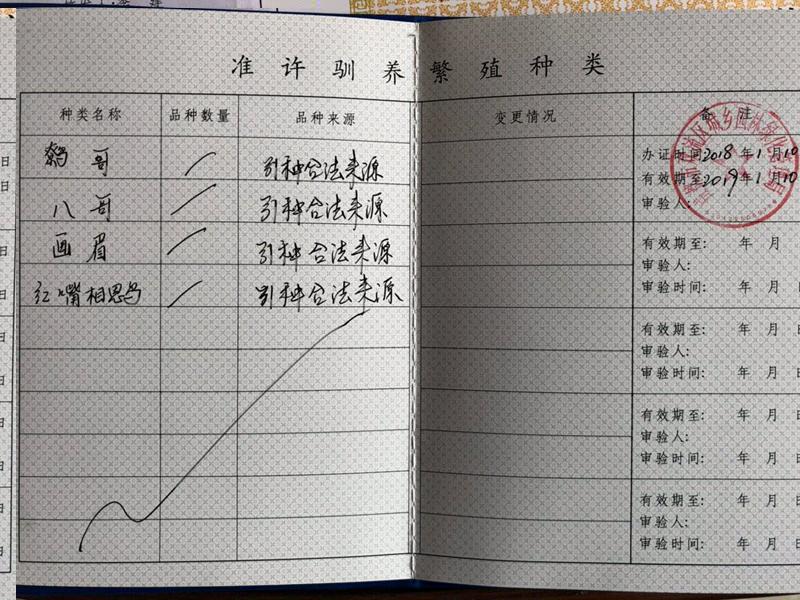 准许驯养繁殖种类
种类名称 品种数量 品种来源 变更情况 备注
鹩哥 引种合法来源
八哥 引种合法来源
画眉 引种合法来源
红嘴相思鸟 引种合法来源
办证时间2018年1月10
有效期至2019年1月10
审验人:
有效期至: 年 月
审验人:
审验时间: 年 月 日
有效期至: 年 月 日
审验人:
审验时间: 年 月 日
有效期至: 年 月 日
审验人:
审验时间: 年 月 日
有效期至: 年 月 日
审验人:
审验时间: 年 月 日
日
日
日
日
日
日
日
日
日